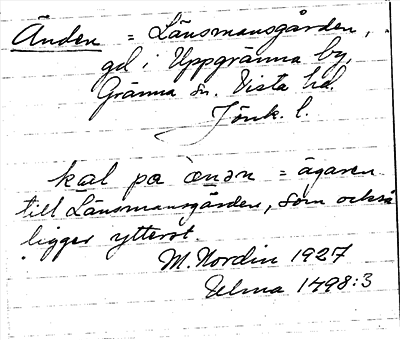 Änden = Länsmansgården,
gd i Uppgränna by,
Gränna sn. Vista hd.
Jönk. l.
kal pa ̀ænən = ägaren
till Länsmansgården, som också
ligger ytterst.
M. Nordin 1927
Ulma 1498:3